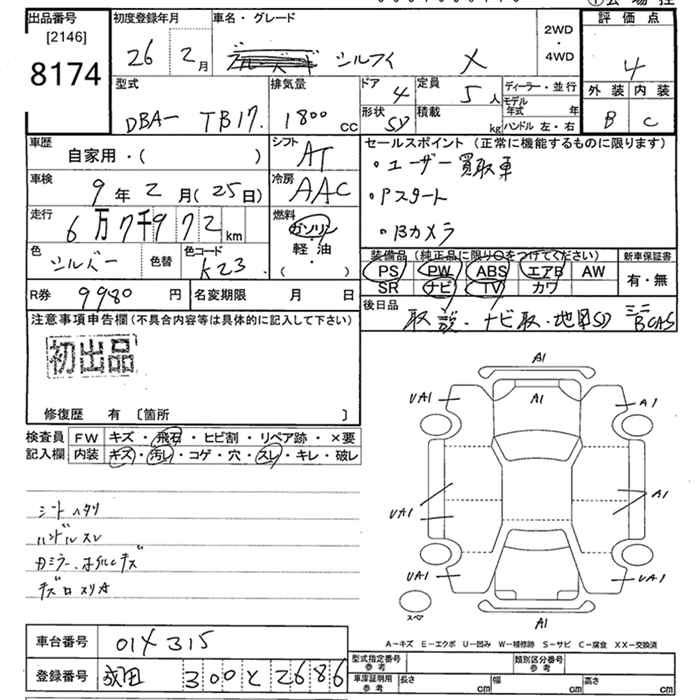 出品番号
[2146]
8174
初度登録年月
26 2月
車名・グレード
シルフィ X
2WD
・
4WD
評価点
4
外装 内装
B C
型式
DBA- TB17.
排気量
1800 cc
ドア
4
定員
5人
形状
SD
積載
kg
ディーラー・並行
モデル
年式 年
ハンドル 左・右
車歴
自家用・( )
シフト
AT
車検
9年2月(25日)
冷房
AAC
走行
6万7千972km
燃料
ガソリン
軽・油
・
( )
色
シルバー
色替
色コード
K23.
R券 9980円
名変期限 月 日
セールスポイント (正常に機能するものに限ります)
・ユーザー買取車
・Pスタート
・Bカメラ
装備品 (純正品に限り○をつけてください)
PS PW ABS エアB AW
SR ナビ TV カワ
新車保証書
有・無
後日品
取説・ナビ取・地図SD ミニBCAS
注意事項申告欄(不具合内容等は具体的に記入して下さい)
初出品
修復歴 有 〔箇所 〕
検査員
記入欄
FW キズ・飛石・ヒビ割・リペア跡・×要
内装 キズ・汚レ・コゲ・穴・スレ・キレ・破レ
シートヘタリ
ハンドルスレ
カミラー、ホイルキズ
キズロスリ
A1
UA1
A1
A1
UA1
UA1
A1
UA1
UA1
A1
スペア
A-キズ E-エクボ U-凹み W-補修跡 S-サビ C-腐食 XX-交換済
車台番号 014315
登録番号 成田 300と2686
型式指定番号
参考
類別区分番号
参考
車庫証明用
参考
長さ cm
幅 cm
高さ cm